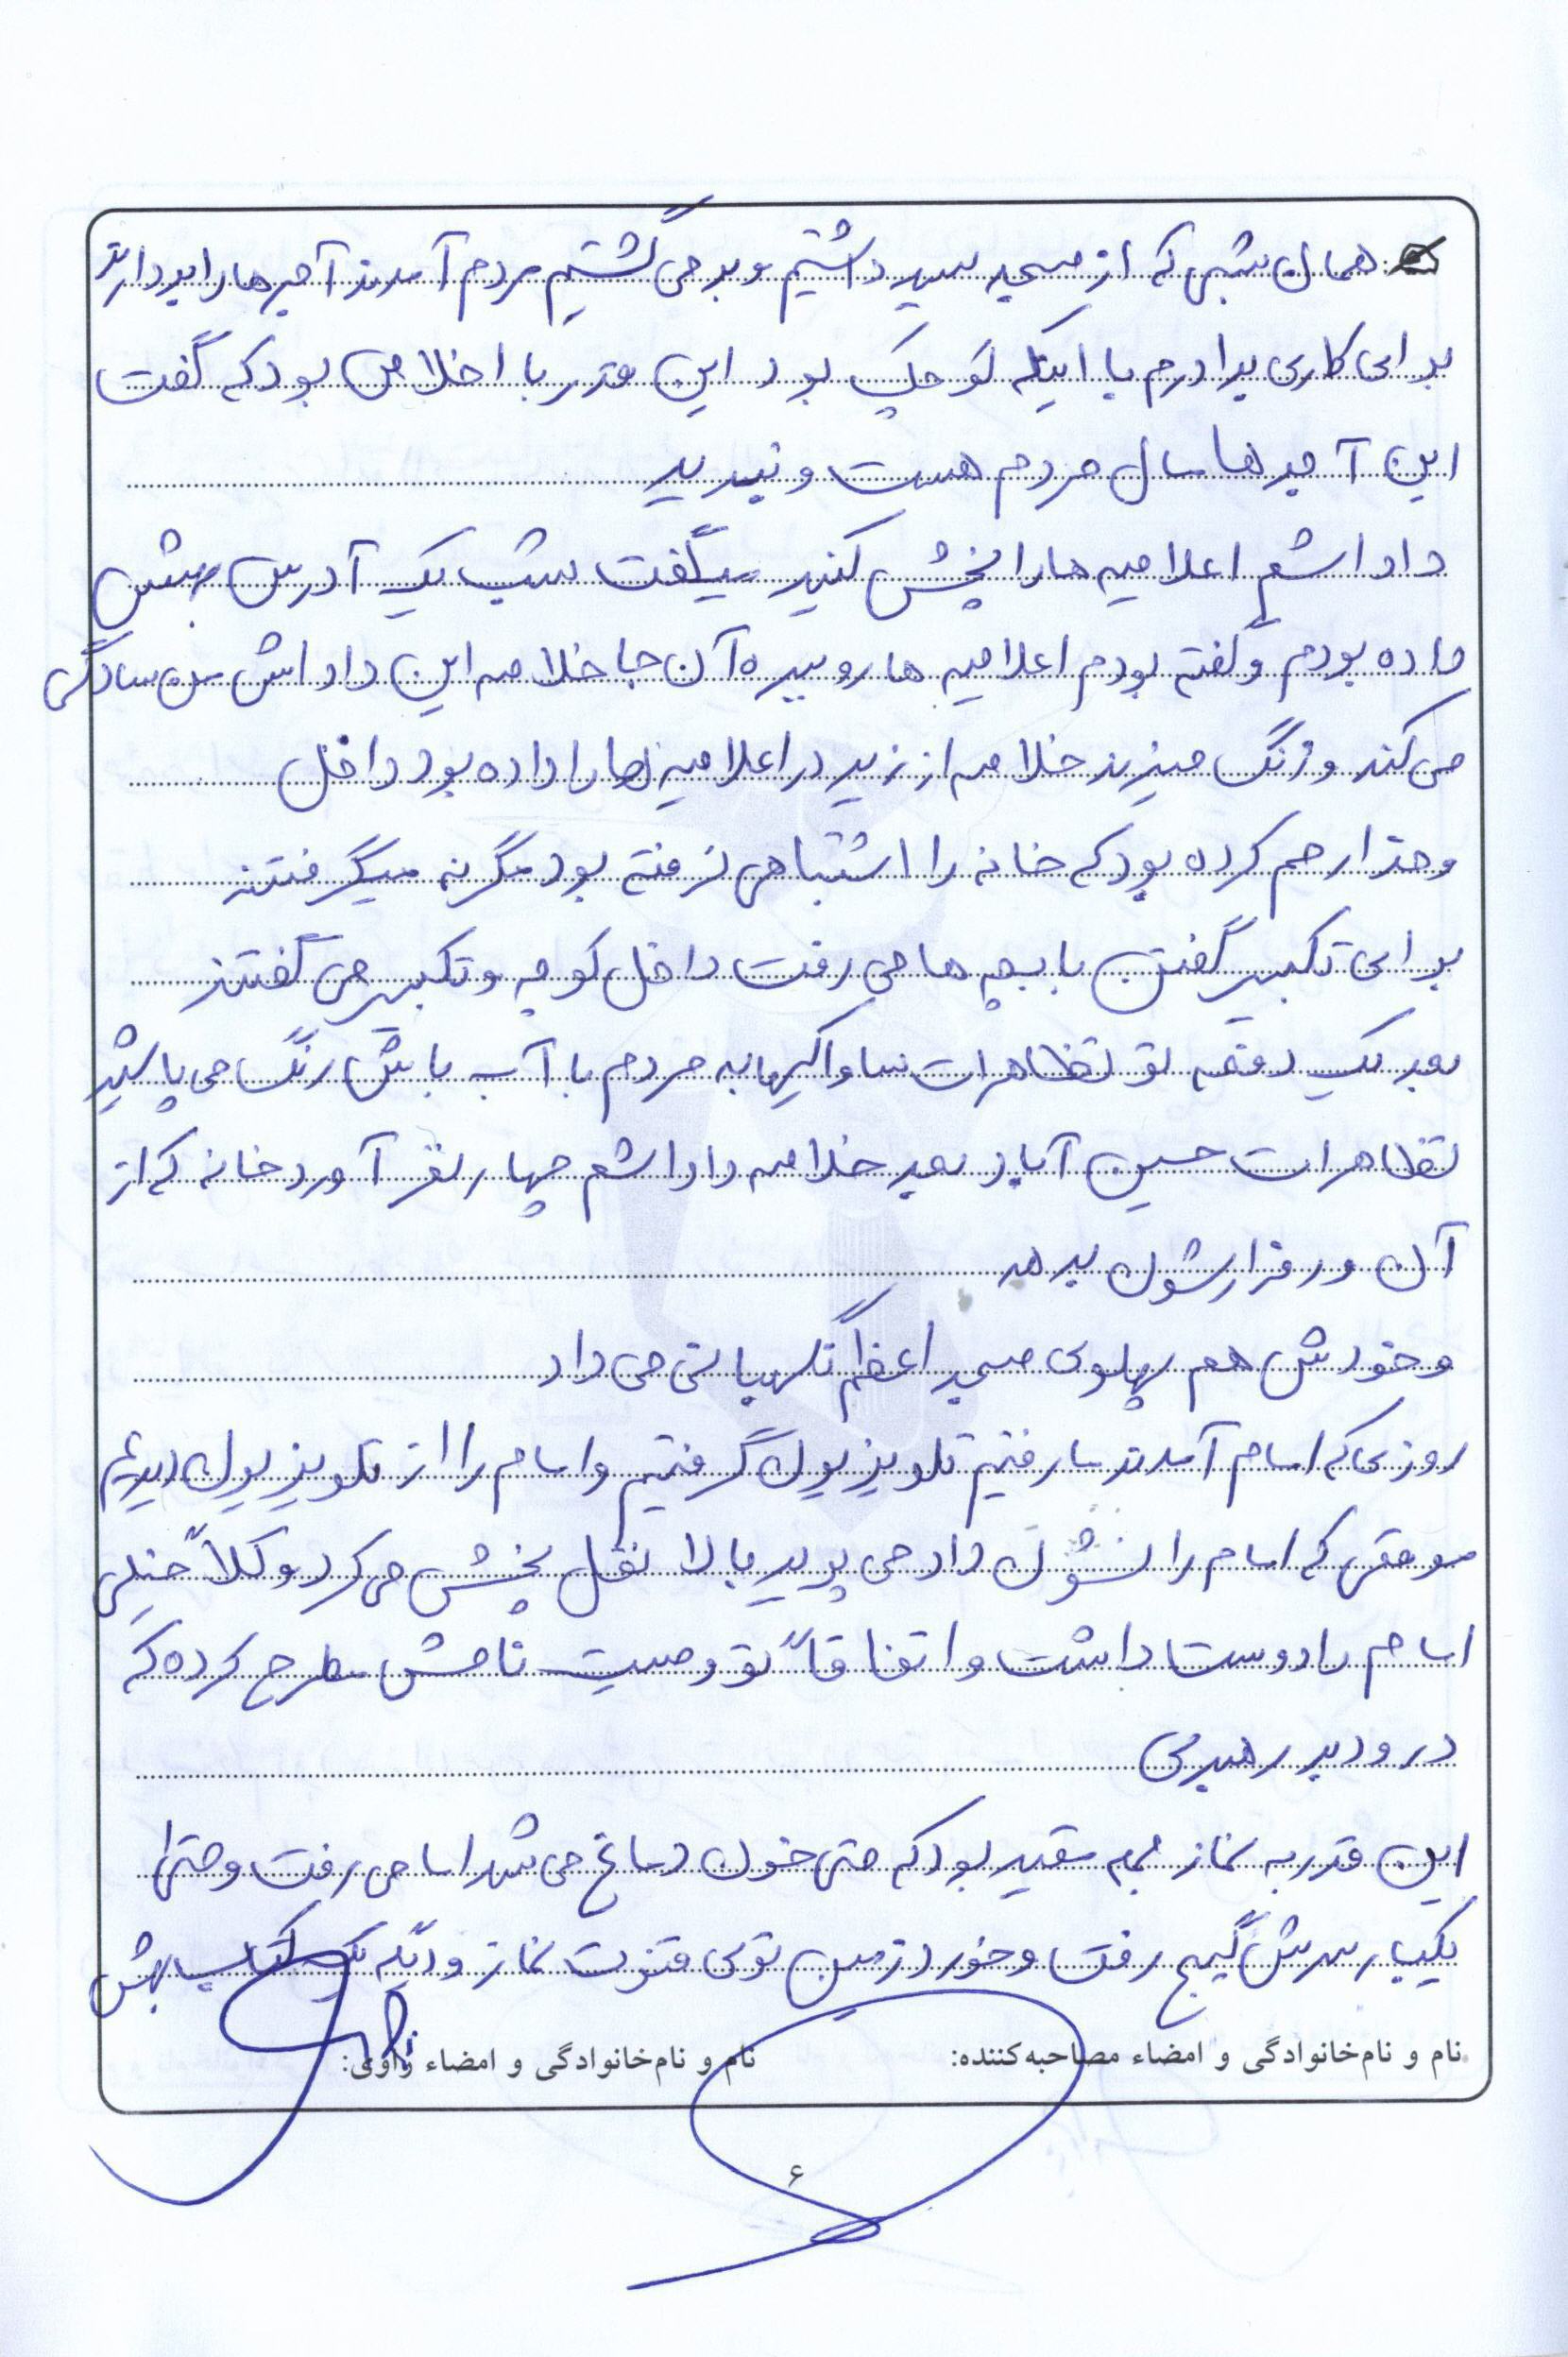 همان شبی که از مسجد سید داشتیم و بر می گشتیم مردم آمدند آجرها را بردارند
برای کاری برادرم با اینکه کوچک بود این قدر با اخلاص بود که گفت
این آجرها مال مردم هست و نبرید
داداشم اعلامیه ها را پخش کنید میگفت شب یک آدرس بهش
داده بودم و گفته بودم اعلامیه ها رو ببره آن جا خلاصه این داداش من سادگی
می کند و زنگ میزند خلاصه از زیر در اعلامیه ها را داده بود داخل
و خدا رحم کرده بود که خانه را اشتباهی نرفته بود مگرنه میگرفتند
برای تکبیر گفتن با بچه ها می رفت داخل کوچه و تکبیر می گفتند
بعد یک دفعه تو تظاهرات ساواکیها به مردم با آب پاش رنگ می پاشید
تظاهرات حسین آباد بعد خلاصه داداشم چهار نفر آورد خانه که از
آن ور فرارشون بدهد
و خودش هم پهلوی مسجد اعظم نگهبانی می داد
روزی که امام آمدند ما رفتیم تلویزیون گرفتیم و امام را از تلویزیون دیدیم
موقعی که امام را نشون داد می پرید بالا نقل پخش می کرد و کلاً خیلی
امام را دوست داشت و اتفاقاً تو وصیت نامش مطرح کرده که
درود بر رهبری
این قدر به نماز جمعه مقید بود که حتی خون دماغ می شد اما می رفت و حتی
یکبار سرش گیج رفت و خورد زمین توی قنوت نماز و یک کتاب بهش
نام و نام‌خانوادگی و امضاء مصاحبه‌کننده: نام و نام‌خانوادگی و امضاء راوی:
۶